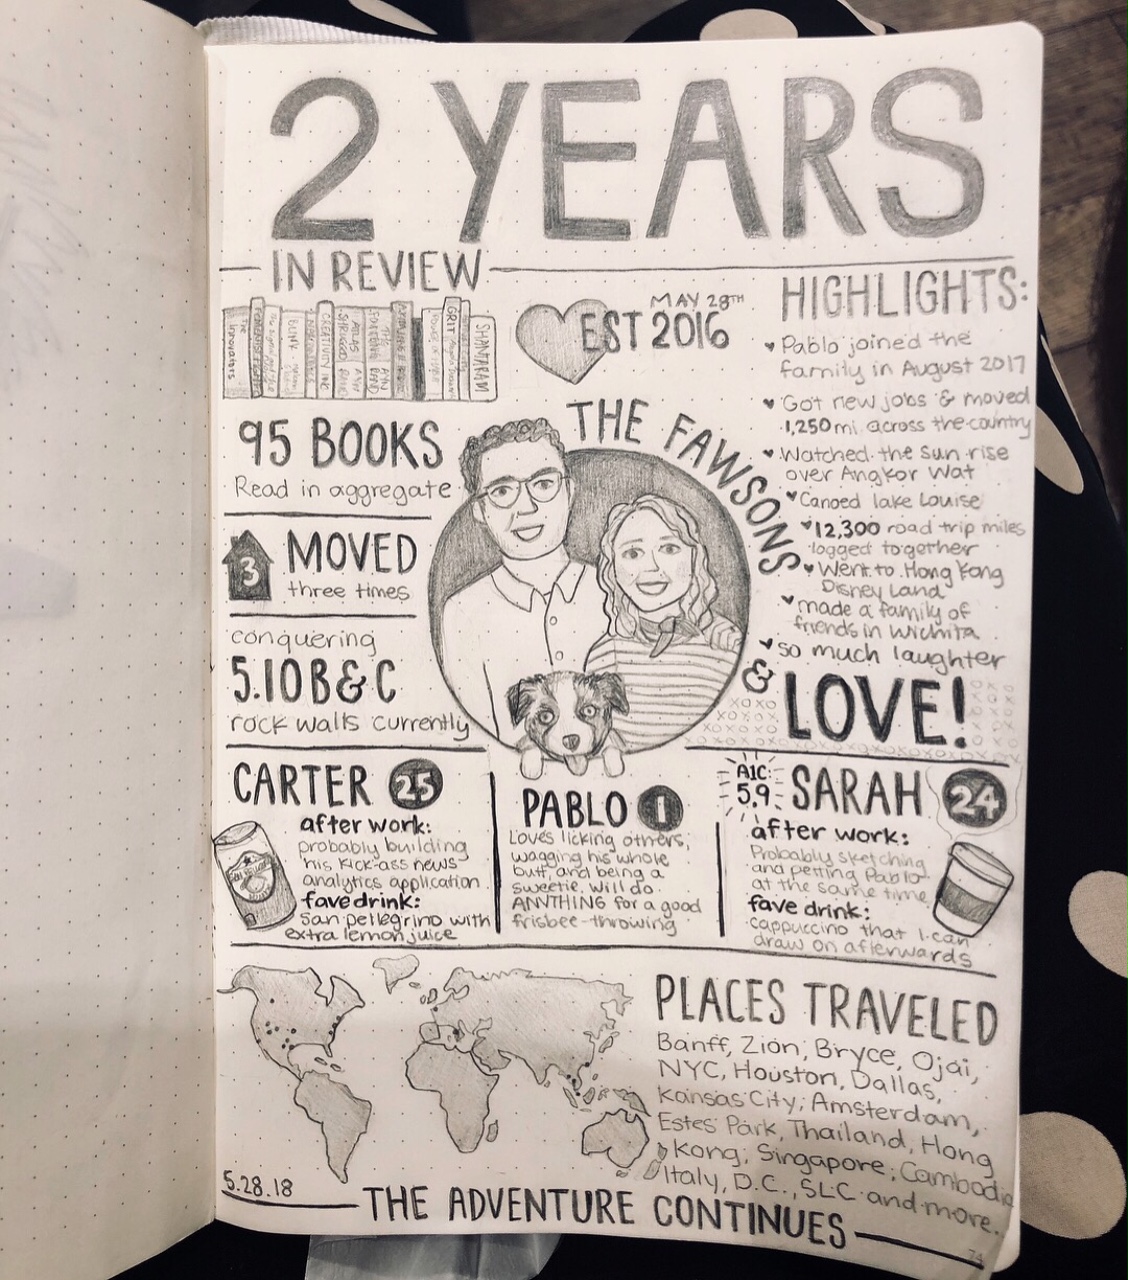 2 YEARS
IN REVIEW
SHANTARAM
GRIT
ATLAS
SHRUGGED
CREATIVITY INC
the innovators
MAY 28TH
EST 2016
95 BOOKS
Read in aggregate
3
MOVED
three times
conquering
5.10 B & C
rock walls currently
THE FAWSONS
HIGHLIGHTS:
Pablo joined the
family in August 2017
Got new jobs & moved
1,250 mi across the country
Watched the sun rise
over Angkor Wat
Canoed lake Louise
12,300 road trip miles
logged together
Went to Hong Kong
Disney Land
made a family of
friends in Wichita
so much laughter
& LOVE!
xoxo
CARTER 25
after work:
probably building
his kick-ass news
analytics application
fave drink:
San pellegrino with
extra lemon juice
PABLO 1
Loves licking others,
wagging his whole
butt, and being a
sweetie. Will do
ANYTHING for a good
frisbee-throwing
A1C:
5.9
SARAH 24
after work:
Probably sketching
and petting Pablo
at the same time
fave drink:
cappuccino that I can
draw on afterwards
PLACES TRAVELED
Banff, Zion, Bryce, Ojai,
NYC, Houston, Dallas,
Kansas City, Amsterdam,
Estes Park, Thailand, Hong
Kong, Singapore, Cambodia
Italy, D.C., SLC and more.
5.28.18
THE ADVENTURE CONTINUES
74